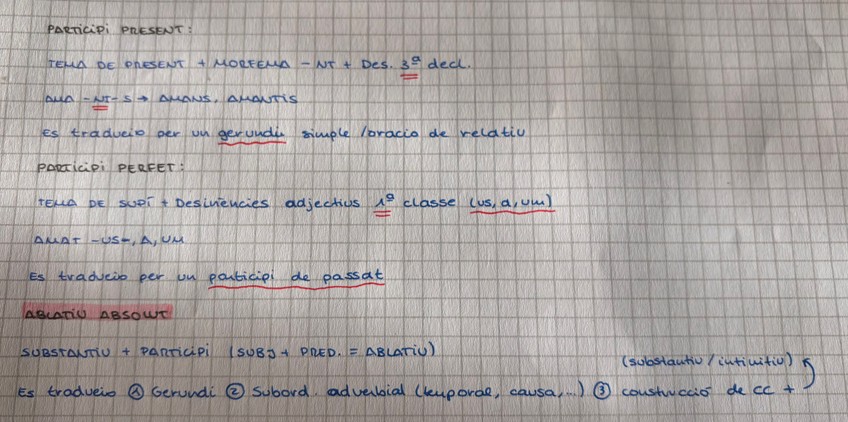 PARTICIPI PRESENT:
TEMA DE PRESENT + MORFEMA - NT + Des. 3ª decl.
AMA - NT - S → AMANS, AMANTIS
ES tradueix per un gerundi simple /oracio de relatiu
PARTICIPI PERFET:
TEMA DE SUPÍ + Desinències adjectius 1ª classe (us, a, um)
AMAT - US -, A, UM
ES tradueix per un participi de passat
ABLATIU ABSOLUT
SUBSTANTIU + PARTICIPI (SUBJ + PRED. = ABLATIU)
(substantiu / infinitiu)
ES tradueix ① Gerundi ② Subord. adverbial (temporal, causa,...) ③ construcció de CC +